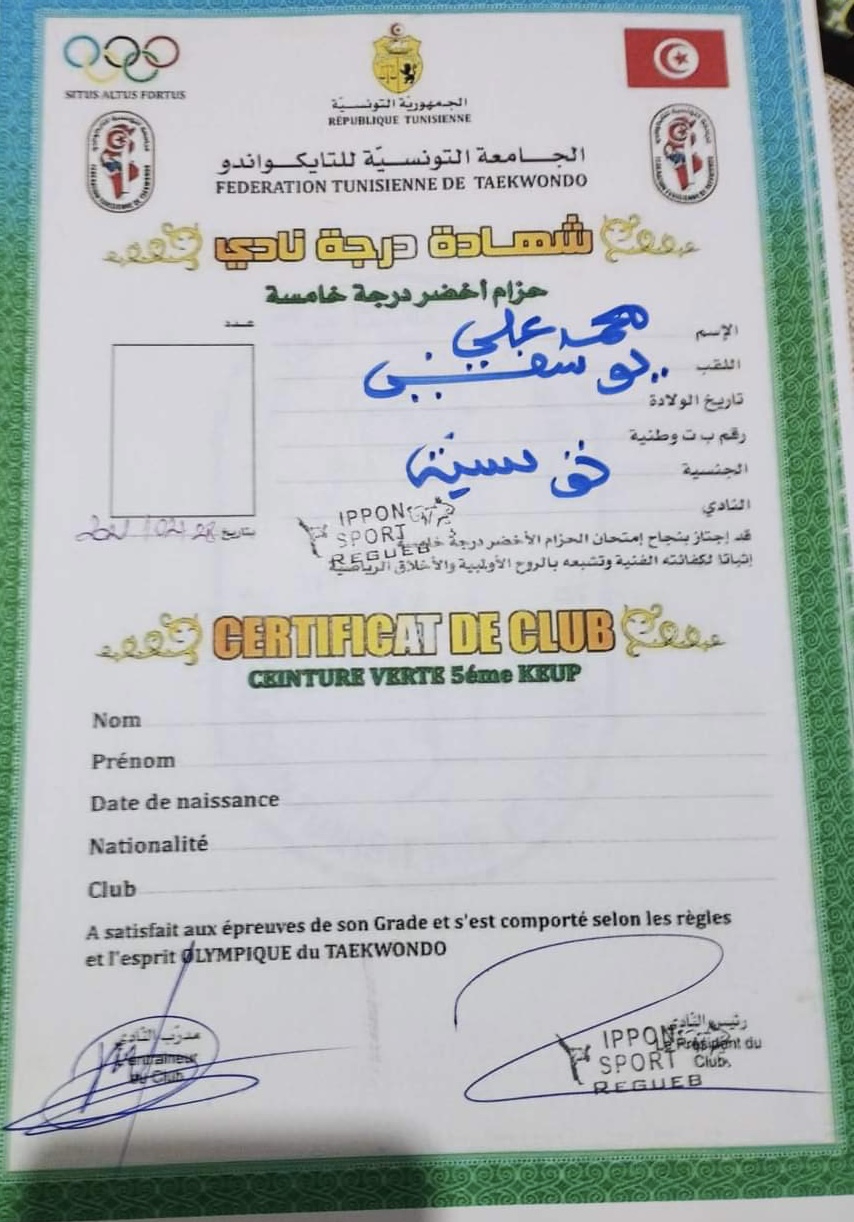 SITUS ALTUS FORTUS
الجمهورية التونسية
RÉPUBLIQUE TUNISIENNE
الجامعة التونسية للتايكواندو
FEDERATION TUNISIENNE DE TAEKWONDO
شهادة درجة نادي
حزام أخضر درجة خامسة
عدد
الإسم محمد علي
اللقب يوسفي
تاريخ الولادة
رقم ب ت وطنية
الجنسية تونسية
النادي
IPPON SPORT REGUEB
بتاريخ
قد إجتاز بنجاح إمتحان الحزام الأخضر درجة خامسة
إثباتا لكفائته الفنية وتشبعه بالروح الأولمبية والأخلاق الرياضية
CERTIFICAT DE CLUB
CEINTURE VERTE 5éme KEUP
Nom
Prénom
Date de naissance
Nationalité
Club
A satisfait aux épreuves de son Grade et s'est comporté selon les règles
et l'esprit OLYMPIQUE du TAEKWONDO
مدرب النادي
L'entraineur
du Club
رئيس النادي
Le Président du
Club
IPPON
SPORT
REGUEB